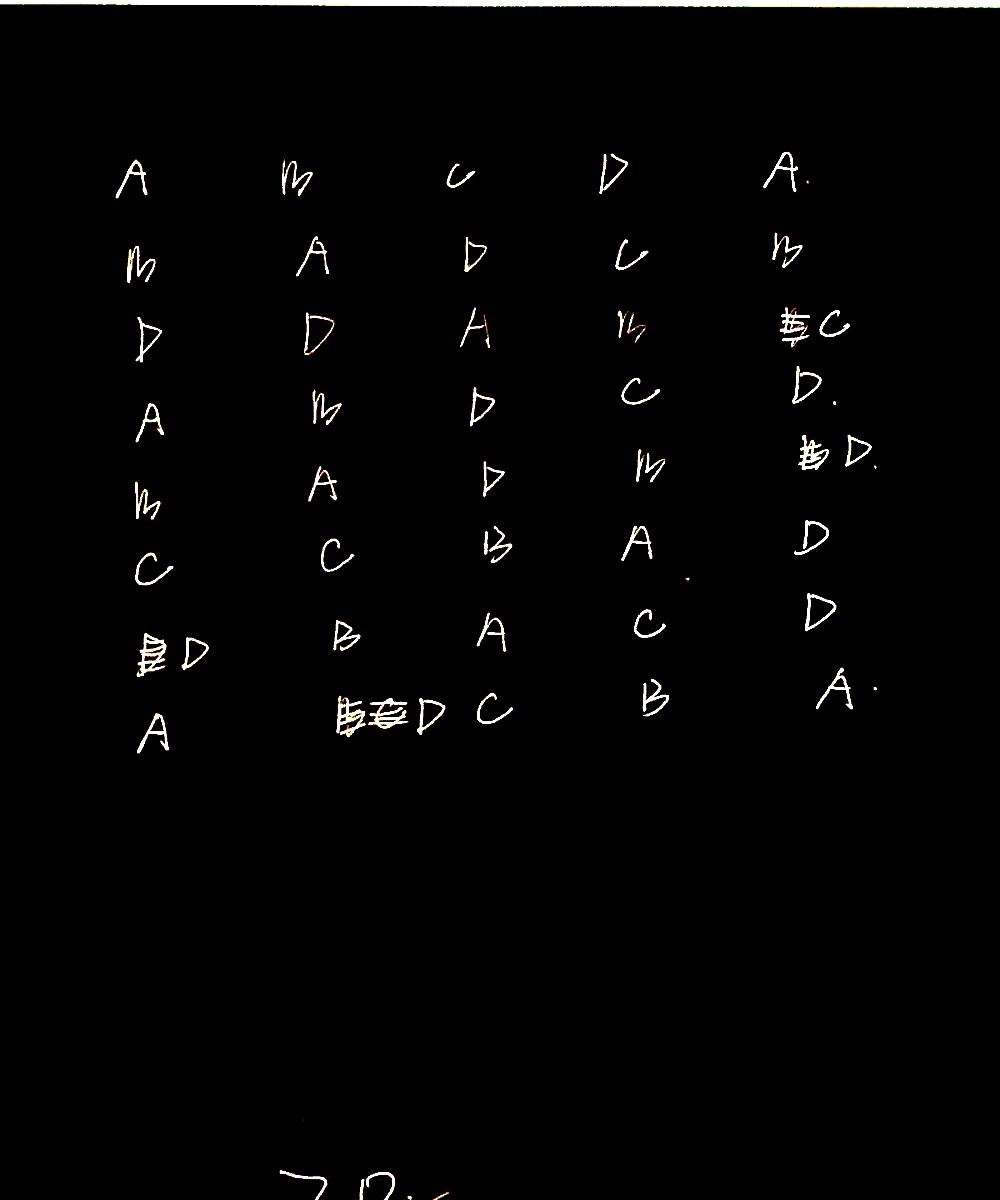 A B C D A.
B A D C B
D D A B C
A B D C D.
B A D B D.
C C B A D
D B A C D
A D C B A.